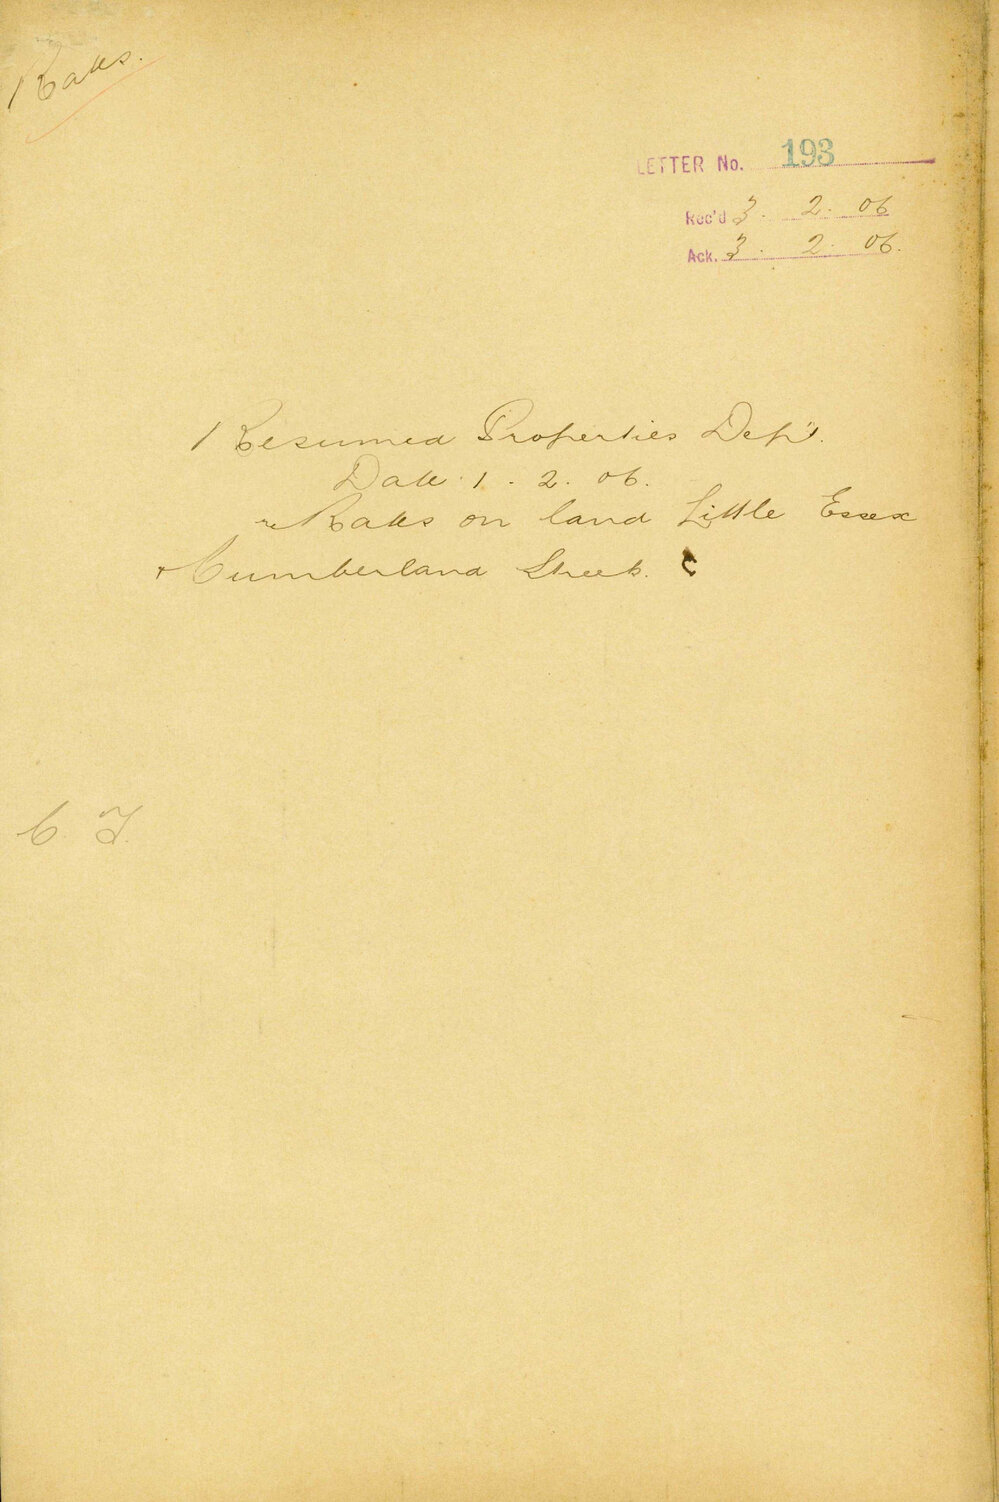 Rates.
LETTER No. 193
Rec'd 3. 2. 06
Ack. 3. 2. 06.
Resumed Properties Dep't.
Date 1. 2. 06.
re Rates on land Little Essex
& Cumberland Streets.
C. T.